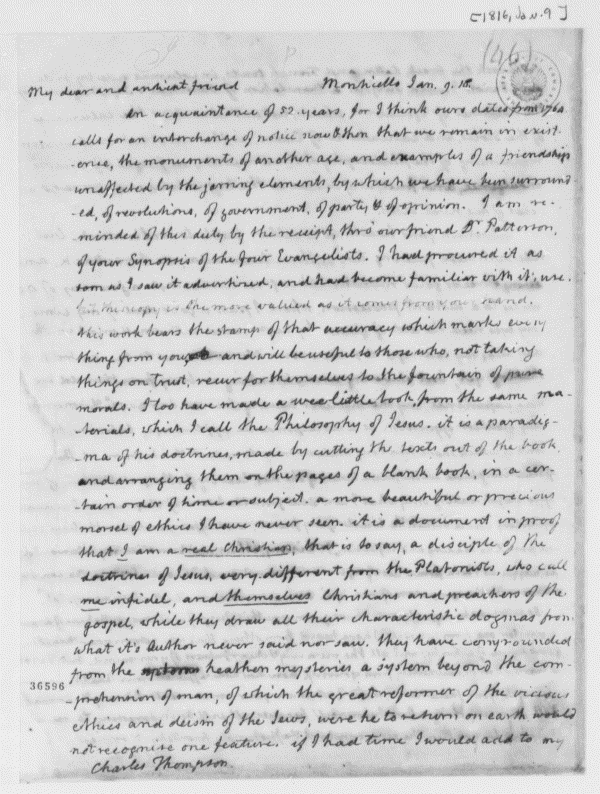 [1816, Jan. 9]
(46)
My dear and antient friend Monticello Jan. 9. 16.
An acquaintance of 52. years, for I think ours dates from 1764.
calls for an interchange of notice now & then that we remain in exist-
-ence, the monuments of another age, and examples of a friendship
unaffected by the jarring elements, by which we have been surround-
-ed, of revolutions, of government, of party & of opinion. I am re-
-minded of this duty by the receipt, thro' our friend Dr. Patterson,
of your Synopsis of the four Evangelists. I had procured it as
soon as I saw it advertized, and had become familiar with it's use.
but this copy is the more valued as it comes from your hand.
this work bears the stamp of that accuracy which marks every
thing from you, and will be useful to those who, not taking
things on trust, recur for themselves to the fountain of pure
morals. I too have made a wee little book, from the same ma-
-terials, which I call the Philosophy of Jesus. it is a paradig-
-ma of his doctrines, made by cutting the texts out of the book,
and arranging them on the pages of a blank book, in a cer-
-tain order of time or subject. a more beautiful or precious
morsel of ethics I have never seen. it is a document in proof
that I am a real Christian, that is to say, a disciple of the
doctrines of Jesus, very different from the Platonists, who call
me infidel, and themselves Christians and preachers of the
gospel, while they draw all their characteristic dogmas from
what it's Author never said nor saw. they have compounded
from the heathen mysteries a system beyond the com-
36596
-prehension of man, of which the great reformer of the vicious
ethics and deism of the Jews, were he to return on earth would
not recognise one feature. if I had time I would add to my
Charles Thompson.